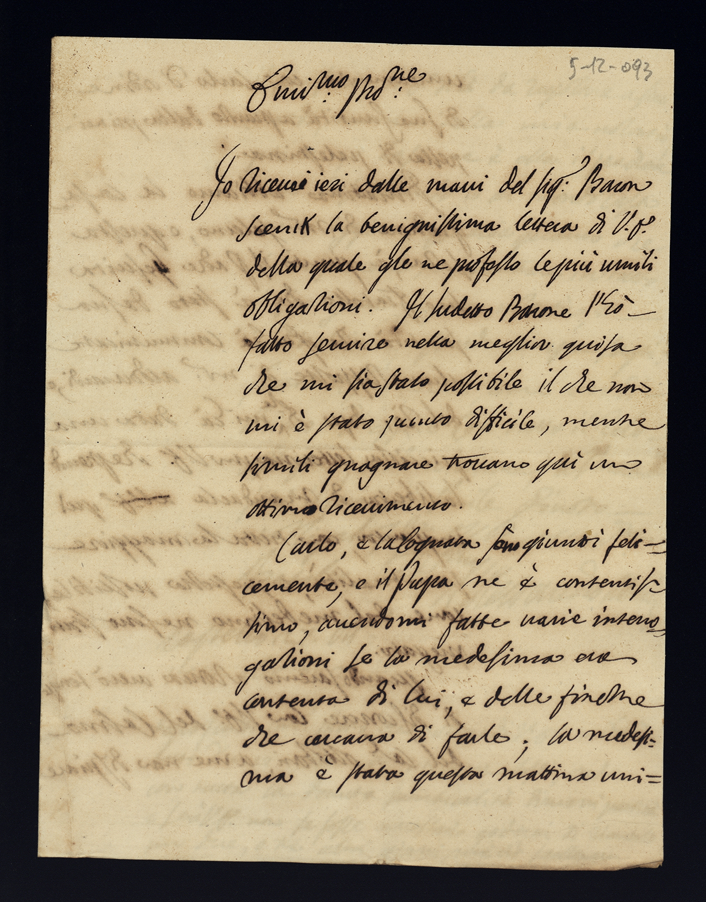 5-12-093
Emin.mo Pro.ne
Io riceuei ieri dalle mani del sig.r Baron
Scenk la benignissima lettera di V.
della quale gle ne professo le più umili
obligationi. Il sudetto Barone l'hò
fatto seruire nella meglior guisa
che mi sia stato possibile il che non
mi è stato punto difficile, mentre
simili trouano quì un
ottimo riceuimento.
Carlo, e la Cognata sono giunti feli=
cemente, e il Papa ne è contentis=
simo, auendomi fatte uarie intero=
gationi se la medesima era
contenta di lui, e delle finezze
che cercaua di farle; la medesi=
ma è stata questa mattina uni=